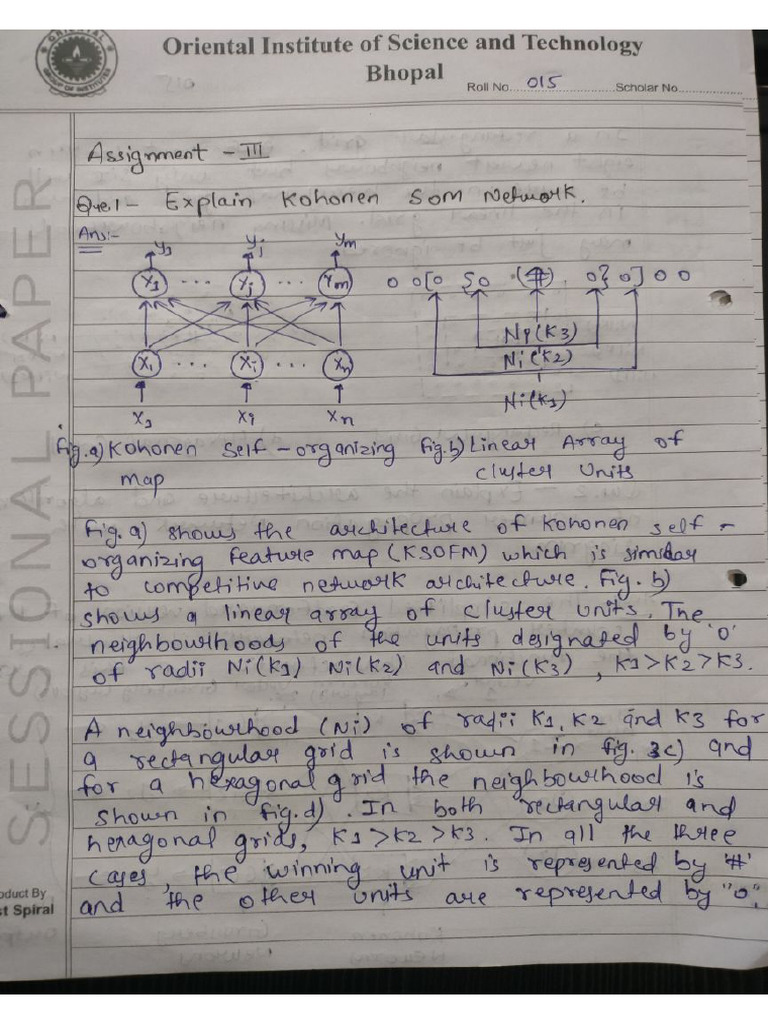 Oriental Institute of Science and Technology
Bhopal
Roll No. 015 Scholar No.
SESSIONAL PAPER
Assignment - III
Que.1- Explain Kohonen SOM Network.
Ans:-
y1 yj ym
Y1 ... Yj ... Ym
o o [o {o (#) o} o] o o
Ni(K3)
Ni(K2)
Ni(K1)
X1 ... Xi ... Xn
x1 xi xn
Fig.a) Kohonen Self-organizing map
Fig.b) Linear Array of cluster Units
Fig. a) shows the architecture of kohonen self -
organizing feature map (KSOFM) which is similar
to competitive network architecture. Fig. b)
shows a linear array of cluster units. The
neighbourhoods of the units designated by 'o'
of radii Ni(K1) Ni(K2) and Ni(K3), K1>K2>K3.
A neighbourhood (Ni) of radii K1, K2 and K3 for
a rectangular grid is shown in fig. 3c) and
for a hexagonal grid the neighbourhood is
shown in fig.d). In both rectangular and
hexagonal grids, K1>K2>K3. In all the three
cases, the winning unit is represented by '#'
and the other units are represented by "o".
oduct By
st Spiral